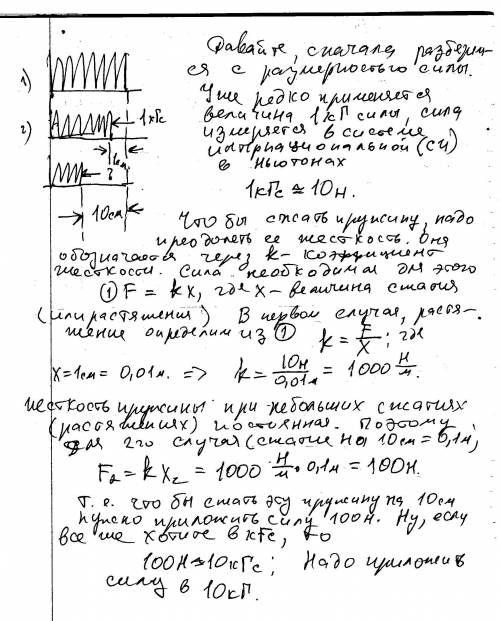 Давайте, сначала разберем-
ся с размерностью силы.
1)
Уже редко применяется
величина 1кГ силы, сила
1кГс
2)
измеряется в системе
интернациональной (СИ)
1см
в ньютонах
?
1кГс ≈ 10н.
10см
Что бы сжать пружину, надо
преодолеть ее жесткость. Она
обозначается через k - коэффициент
жесткости. Сила необходимая для этого
① F = kx, где x - величина сжатия
(или растяжения) В первом случае, растя-
жение определим из ① k = F/x; где
x=1см = 0,01м. => k = 10н/0,01м = 1000 н/м.
жесткость пружины при небольших сжатиях
(растяжениях) постоянная. Поэтому
для 2го случая (сжатие на 10см=0,1м;
F₂ = k x₂ = 1000 н/м • 0,1м = 100н.
Т.е. что бы сжать эту пружину на 10см
нужно приложить силу 100н. Ну, если
все же хотите в кГс, то
100Н ≈ 10кГс; Надо приложить
силу в 10кГ.